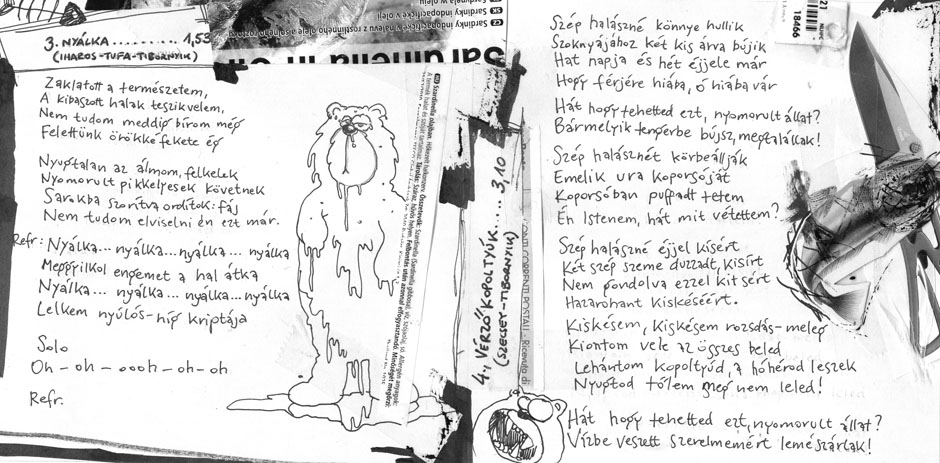 3. NYÁLKA.......... 1,53
(IHAROS-TUFA-TIBORNYIK)
Zaklatott a természetem,
A kibaszott halak teszik velem,
Nem tudom meddig bírom még
Felettünk örökké fekete ég
Nyugtalan az álmom, felkelek
Nyomorult pikkelyesek követnek
Sarakba szorítva ordítok: fáj
Nem tudom elviselni én ezt már.
Refr: Nyálka... nyálka... nyálka... nyálka
Meggyilkol engemet a hal átka
Nyálka... nyálka... nyálka... nyálka
Lelkem nyúlós-híg kriptája
Solo
Oh-oh-oooh-oh-oh
Refr.
Sardinky indopacifické v oleji
SK
CZ
Sardinella in Oil
4., VÉRZŐ KOPOLTYÚK..... 3,10
(SZECSEY-TIBORNYIK)
CONTI CORRENTI POSTALI - Ricevuta di
18466
Szép halászné könnye hullik
Szoknyájához két kis árva bújik
Hat napja és hét éjjele már
Hogy férjére hiába, ó hiába vár
Hát hogy tehetted ezt, nyomorult állat?
Bármelyik tengerbe bújsz, megtalállak!
Szép halásznét körbeállják
Emelik ura koporsóját
Koporsóban puffadt tetem
Én Istenem, hát mit vétettem?
Szép halászné éjjel kísért
Két szép szeme duzzadt, kisírt
Nem gondolva ezzel kit sért
Hazarohant kiskéséért.
Kiskésem, kiskésem rozsdás-meleg
Kiontom vele az összes beled
Lehántom kopoltyúd, a hóhérod leszek
Nyugtod tőlem meg nem leled!
Hát hogy tehetted ezt, nyomorult állat?
Vízbe veszett szerelmemért lemészárlak!